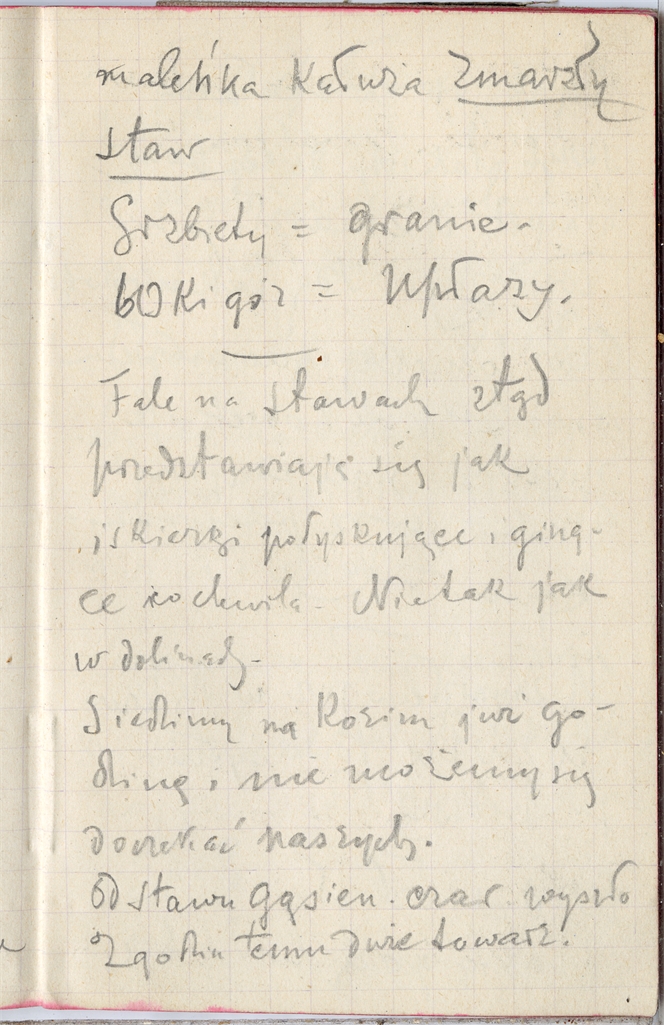 maleńka kałuża Zmarzły
staw
Grzbiety = granie.
boki gór = Upłazy.
Fale na stawach stąd
przedstawiają się jak
iskierki połyskujące i giną-
ce co chwila. Nie tak jak
w dolinach.
Siedzimy na Kozim już go-
dzinę i nie możemy się
doczekać naszych.
Od stawu Gąsien. czar wyszło
2 godzin temu duże towarz.